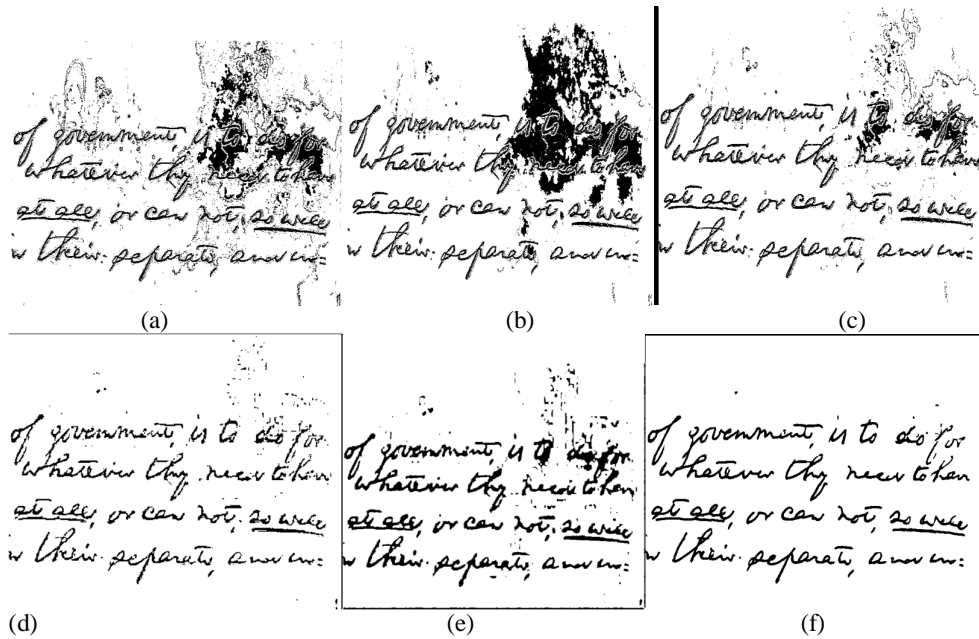 of government, is to do for
whatever they need to have
at all, or can not, so well
their separate, and in=
(a)
of government, is to do for
whatever they need to have
at all, or can not, so well
their separate, and in=
(b)
of government, is to do for
whatever they need to have
at all, or can not, so well
their separate, and in=
(c)
of government, is to do for
whatever they need to have
at all, or can not, so well
their separate, and in=
(d)
of government, is to do for
whatever they need to have
at all, or can not, so well
their separate, and in=
(e)
of government, is to do for
whatever they need to have
at all, or can not, so well
their separate, and in=
(f)